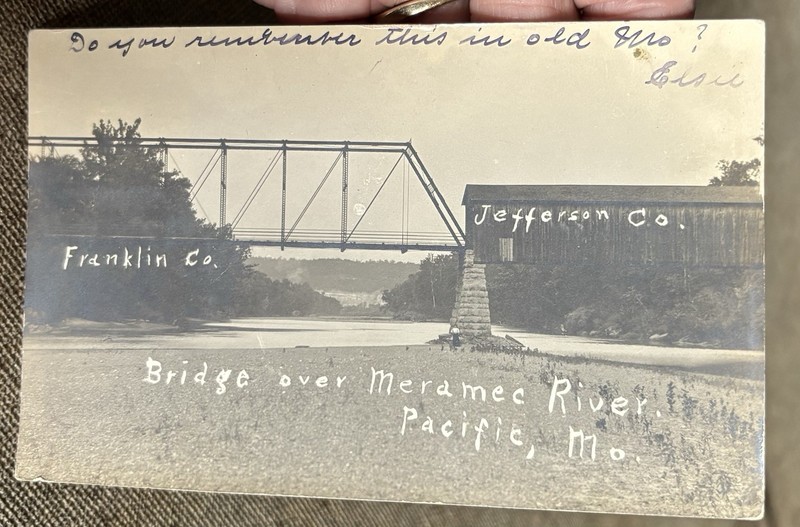 Do you remember this in old Mo?
Elsie
Jefferson Co.
Franklin Co.
Bridge over Meramec River.
Pacific, Mo.